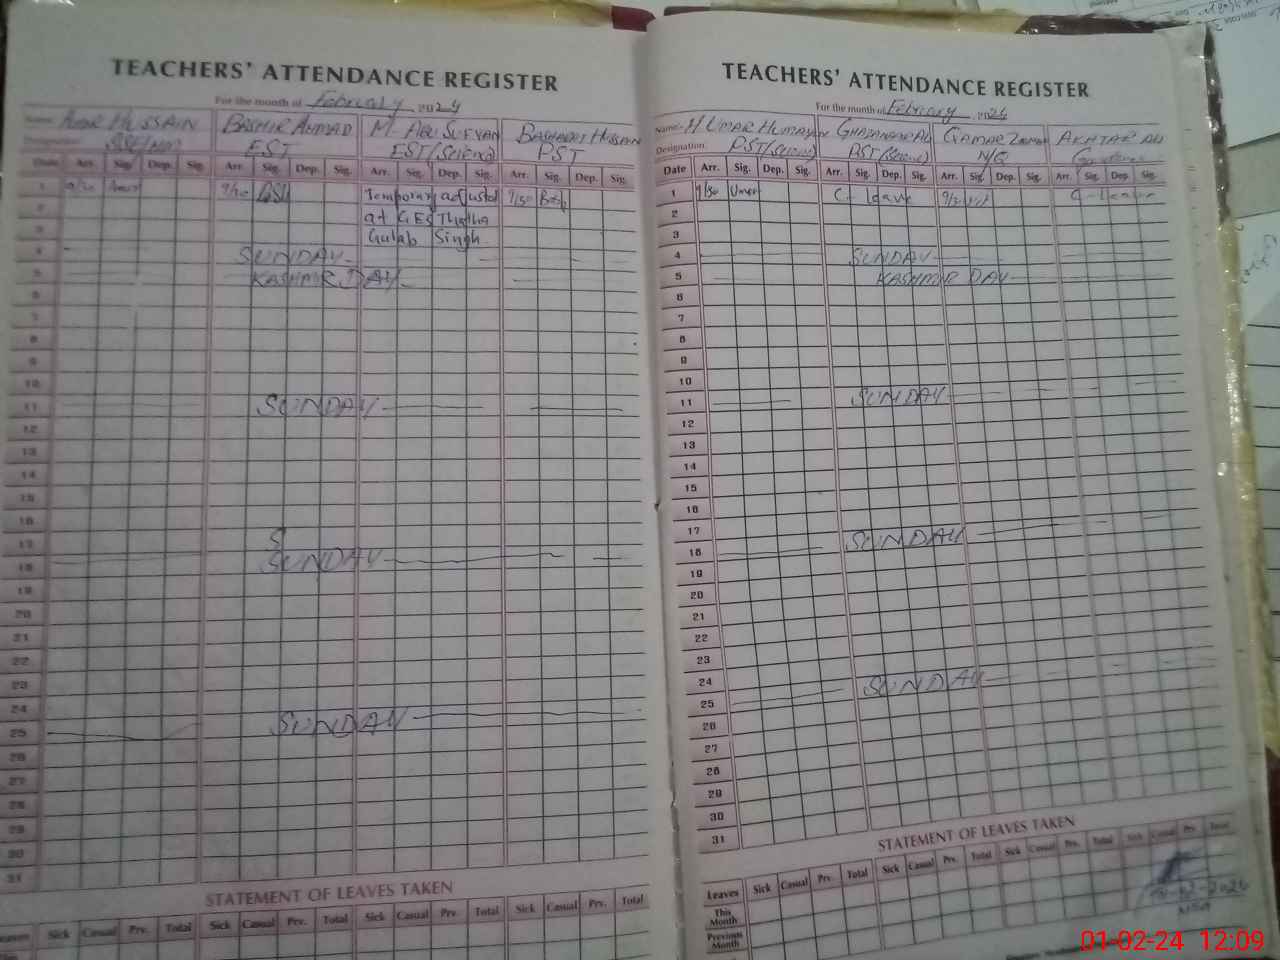 TEACHERS' ATTENDANCE REGISTER
For the month of February 2024
Name: HUSSAIN BASHIR AHMAD M. ABU SUFYAN BASHARAT HUSSAIN
EST EST (SCIENCE) PST
Date Arr. Sig. Dep. Sig. Arr. Sig. Dep. Sig. Arr. Sig. Dep. Sig. Arr. Sig. Dep. Sig.
1 Temporary adjusted
2 at GES Thatha
3 Gulab Singh
4 SUNDAY
5 KASHMIR DAY
6
7
8
9
10
11 SUNDAY
12
13
14
15
16
17 S
18 SUNDAY
19
20
21
22
23
24
25 SUNDAY
26
27
28
29
30
31
STATEMENT OF LEAVES TAKEN
Leaves Sick Casual Prv. Total Sick Casual Prv. Total Sick Casual Prv. Total Sick Casual Prv. Total
This
TEACHERS' ATTENDANCE REGISTER
For the month of February 2024
Name: M UMAR HUMAYUN QAMAR ZAMAN AKHTAR ALI
Designation: PST (SCIENCE) PST (SCIENCE) N/Q
Date Arr. Sig. Dep. Sig. Arr. Sig. Dep. Sig. Arr. Sig. Dep. Sig. Arr. Sig. Dep. Sig.
1 Umar C- leave C-Leave
2
3
4 SUNDAY
5 KASHMIR DAY
6
7
8
9
10
11 SUNDAY
12
13
14
15
16
17
18 SUNDAY
19
20
21
22
23
24 SUNDAY
25
26
27
28
29
30
31
STATEMENT OF LEAVES TAKEN
Leaves Sick Casual Prv. Total Sick Casual Prv. Total Sick Casual Prv. Total Sick Casual Prv. Total
This Month
Previous Month
01-02-24 12:09